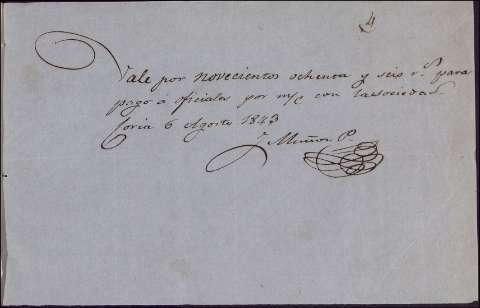 4
Vale por novecientos ochenta y seis r.s para
pago a oficiales por m/c con la sociedad
Coria 6 Agosto 1843
J. Muñoz P.